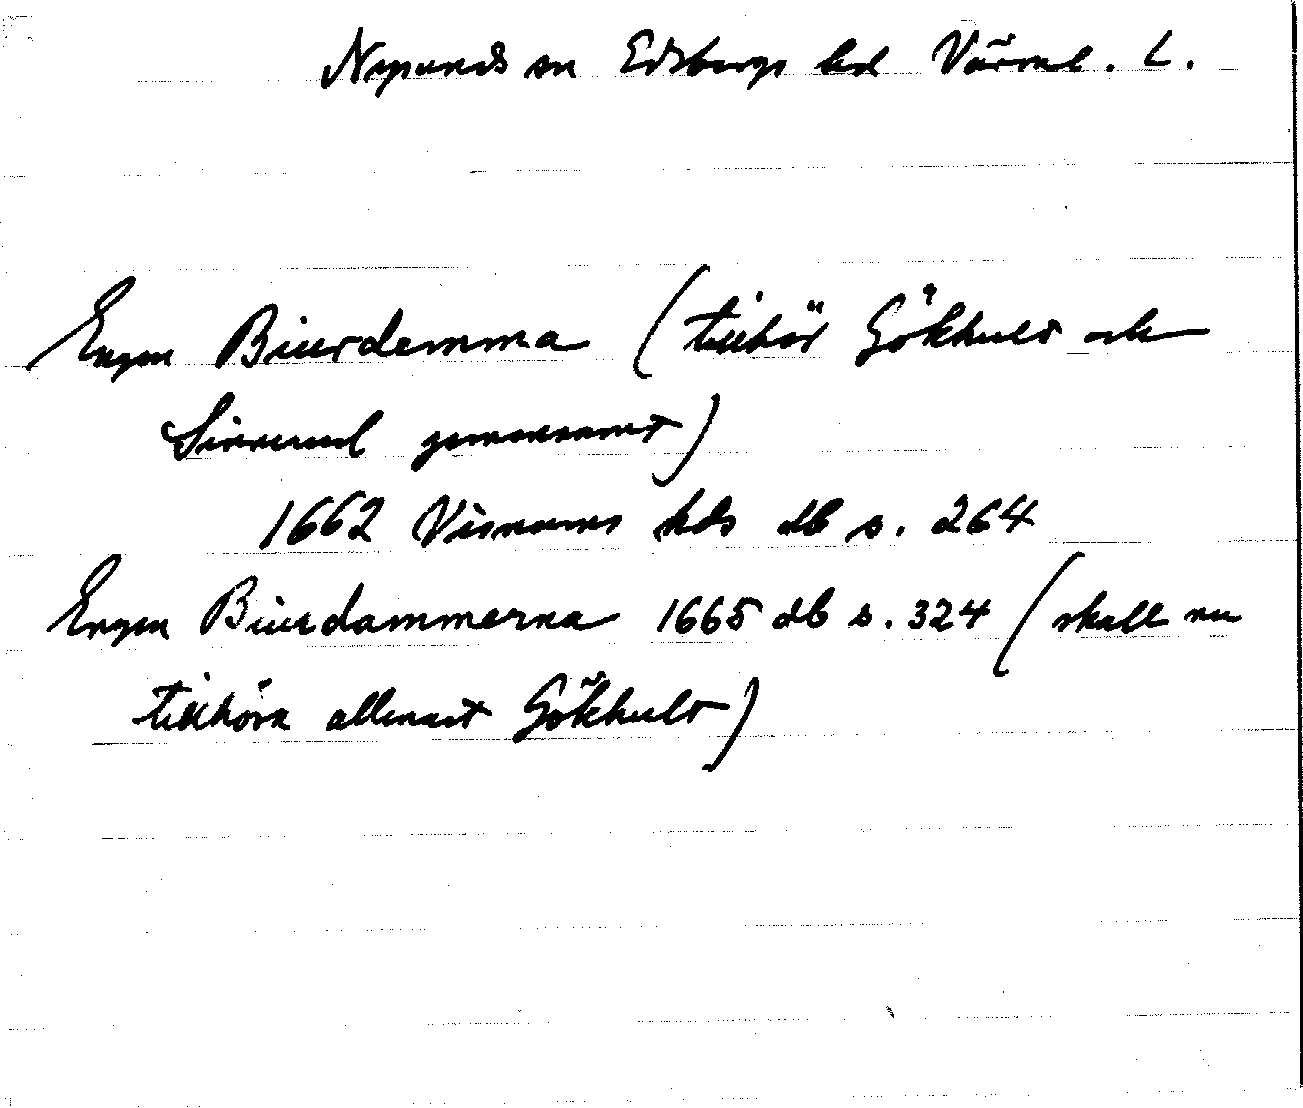 Nysunds sn Edsbergs hd Värml. L.
Engen Biurdemma (tillhör Gökhult och
Sirrud gemensamt)
1662 Visnums hds db s. 264
Engen Biurdammerna 1665 db s. 324 (skall nu
tillhöra allenast Gökhult)